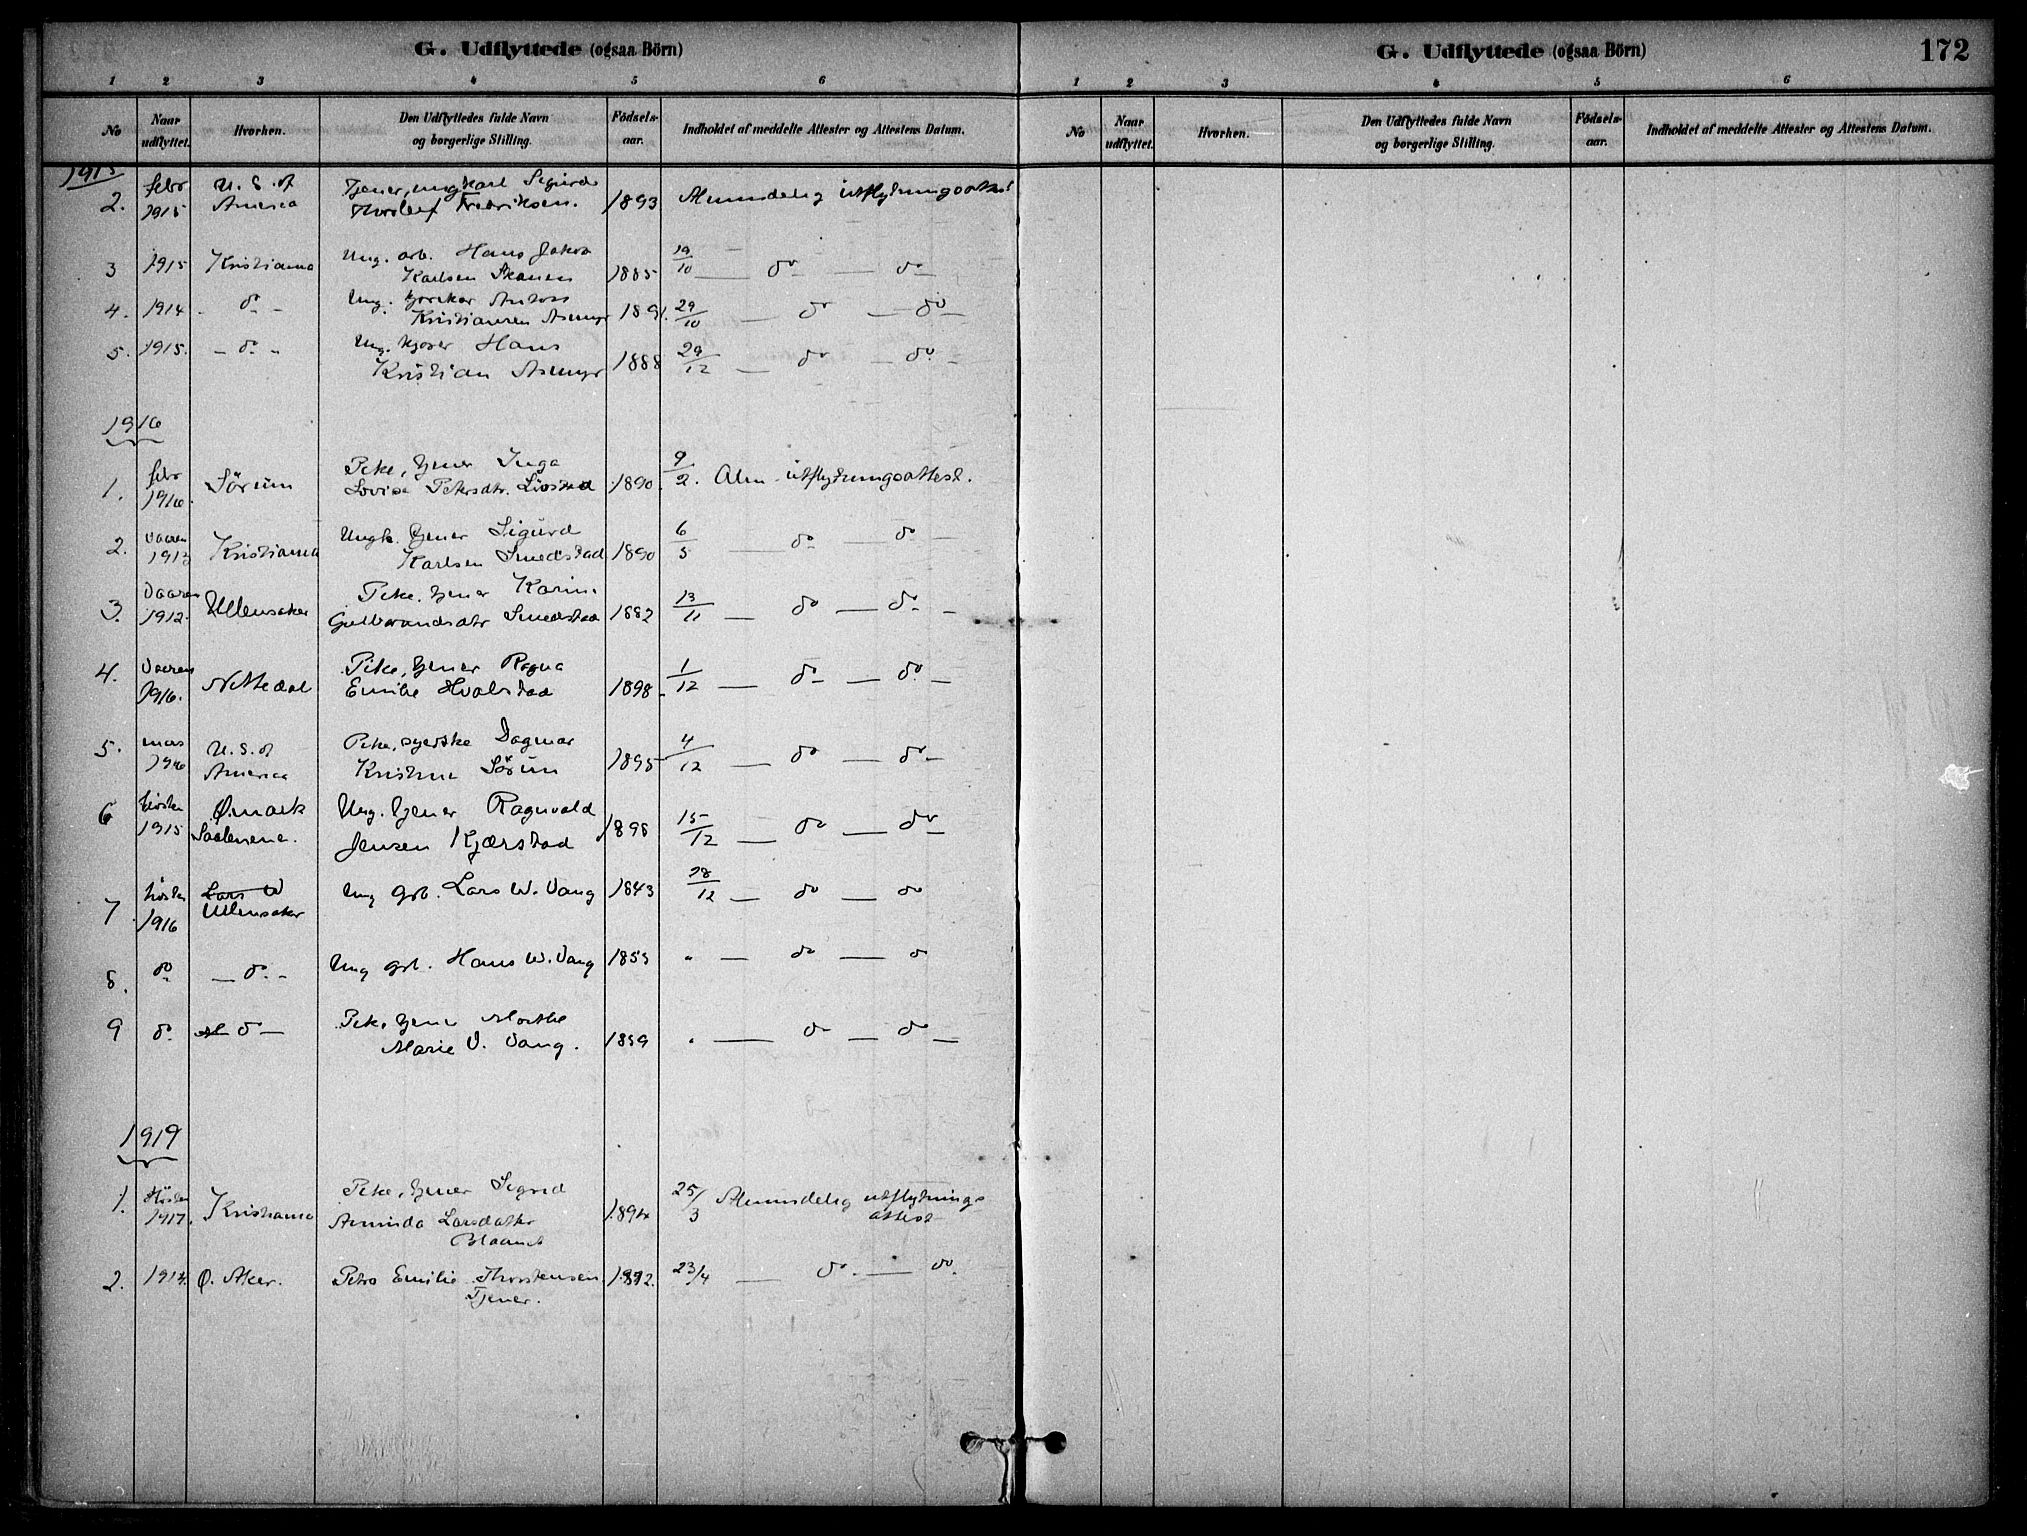 G. Udflyttede (ogsaa Börn)
1 2 3 4 5 6
No
Naar udflyttet.
Hvorhen.
Den Udflyttedes fulde Navn
og borgerlige Stilling.
Födsels-
aar.
Indholdet af meddelte Attester og Attestens Datum.
1915
2. febr 1915 U. S. of America Tjener, ungkarl Sigurd
Thorleif Fredriksen. 1893 Almindelig utflytningsattest
3 1915 Kristiania Ung. arb. Hans Jakob
Karlsen 1885 19/10 — do — do —
4. 1914 - do - Ung. Anton
Kristiansen Asmyr 1891. 29/10 — do — do —
5. 1915. - do - Ung. Hans
Kristian Asmyr 1888 29/12 — do — do —
1916
1. febr 1916. Sörum Pike, tjener Inga
Lovise Petersdtr. 1890. 9/2. Alm. utflytningsattest.
2. Vaaren 1913 Kristiania Ungk. tjener Sigurd
Karlsen Smedstad 1890 6/5 — do — do —
3. Vaaren 1912. Ullensaker Pike. tjener Karin
Gulbrandsdtr Smedstad 1882 13/11 — do — do —
4. Vaaren 1916. Nittedal Pike, tjener Ragna
Emilie Hvalstad 1898. 1/12 — do — do —
5. mars 1916 U. S. of America Pike, syerske Dagmar
Kristine Sörum 1895 4/12 — do — do —
6 hösten 1915 Ømark
Ung. tjener Ragnvald
Jensen Kjærstad 1898 15/12 — do — do —
7. hösten 1916 Lars W
Ullensaker Ung grb. Lars W. Vang 1843 28/12 — do — do —
8. do - do - Ung grb. Hans W. Vang 1853 " — do — do
9 do do — Pike, tjener Marthe
Marie V. Vang. 1859 " — do — do —
1919
1. Hösten 1917. Kristiania Pike, tjener Sigrid
Aminda Larsdatter
1894 25/3 Almindelig utflytnings
attest
2. Ø. Aker. Petra Emilie Thorstensen
Tjener. 1892. 23/4 — do. — do.
G. Udflyttede (ogsaa Börn)
172
1 2 3 4 5 6
No
Naar udflyttet.
Hvorhen.
Den Udflyttedes fulde Navn
og borgerlige Stilling.
Födsels-
aar.
Indholdet af meddelte Attester og Attestens Datum.